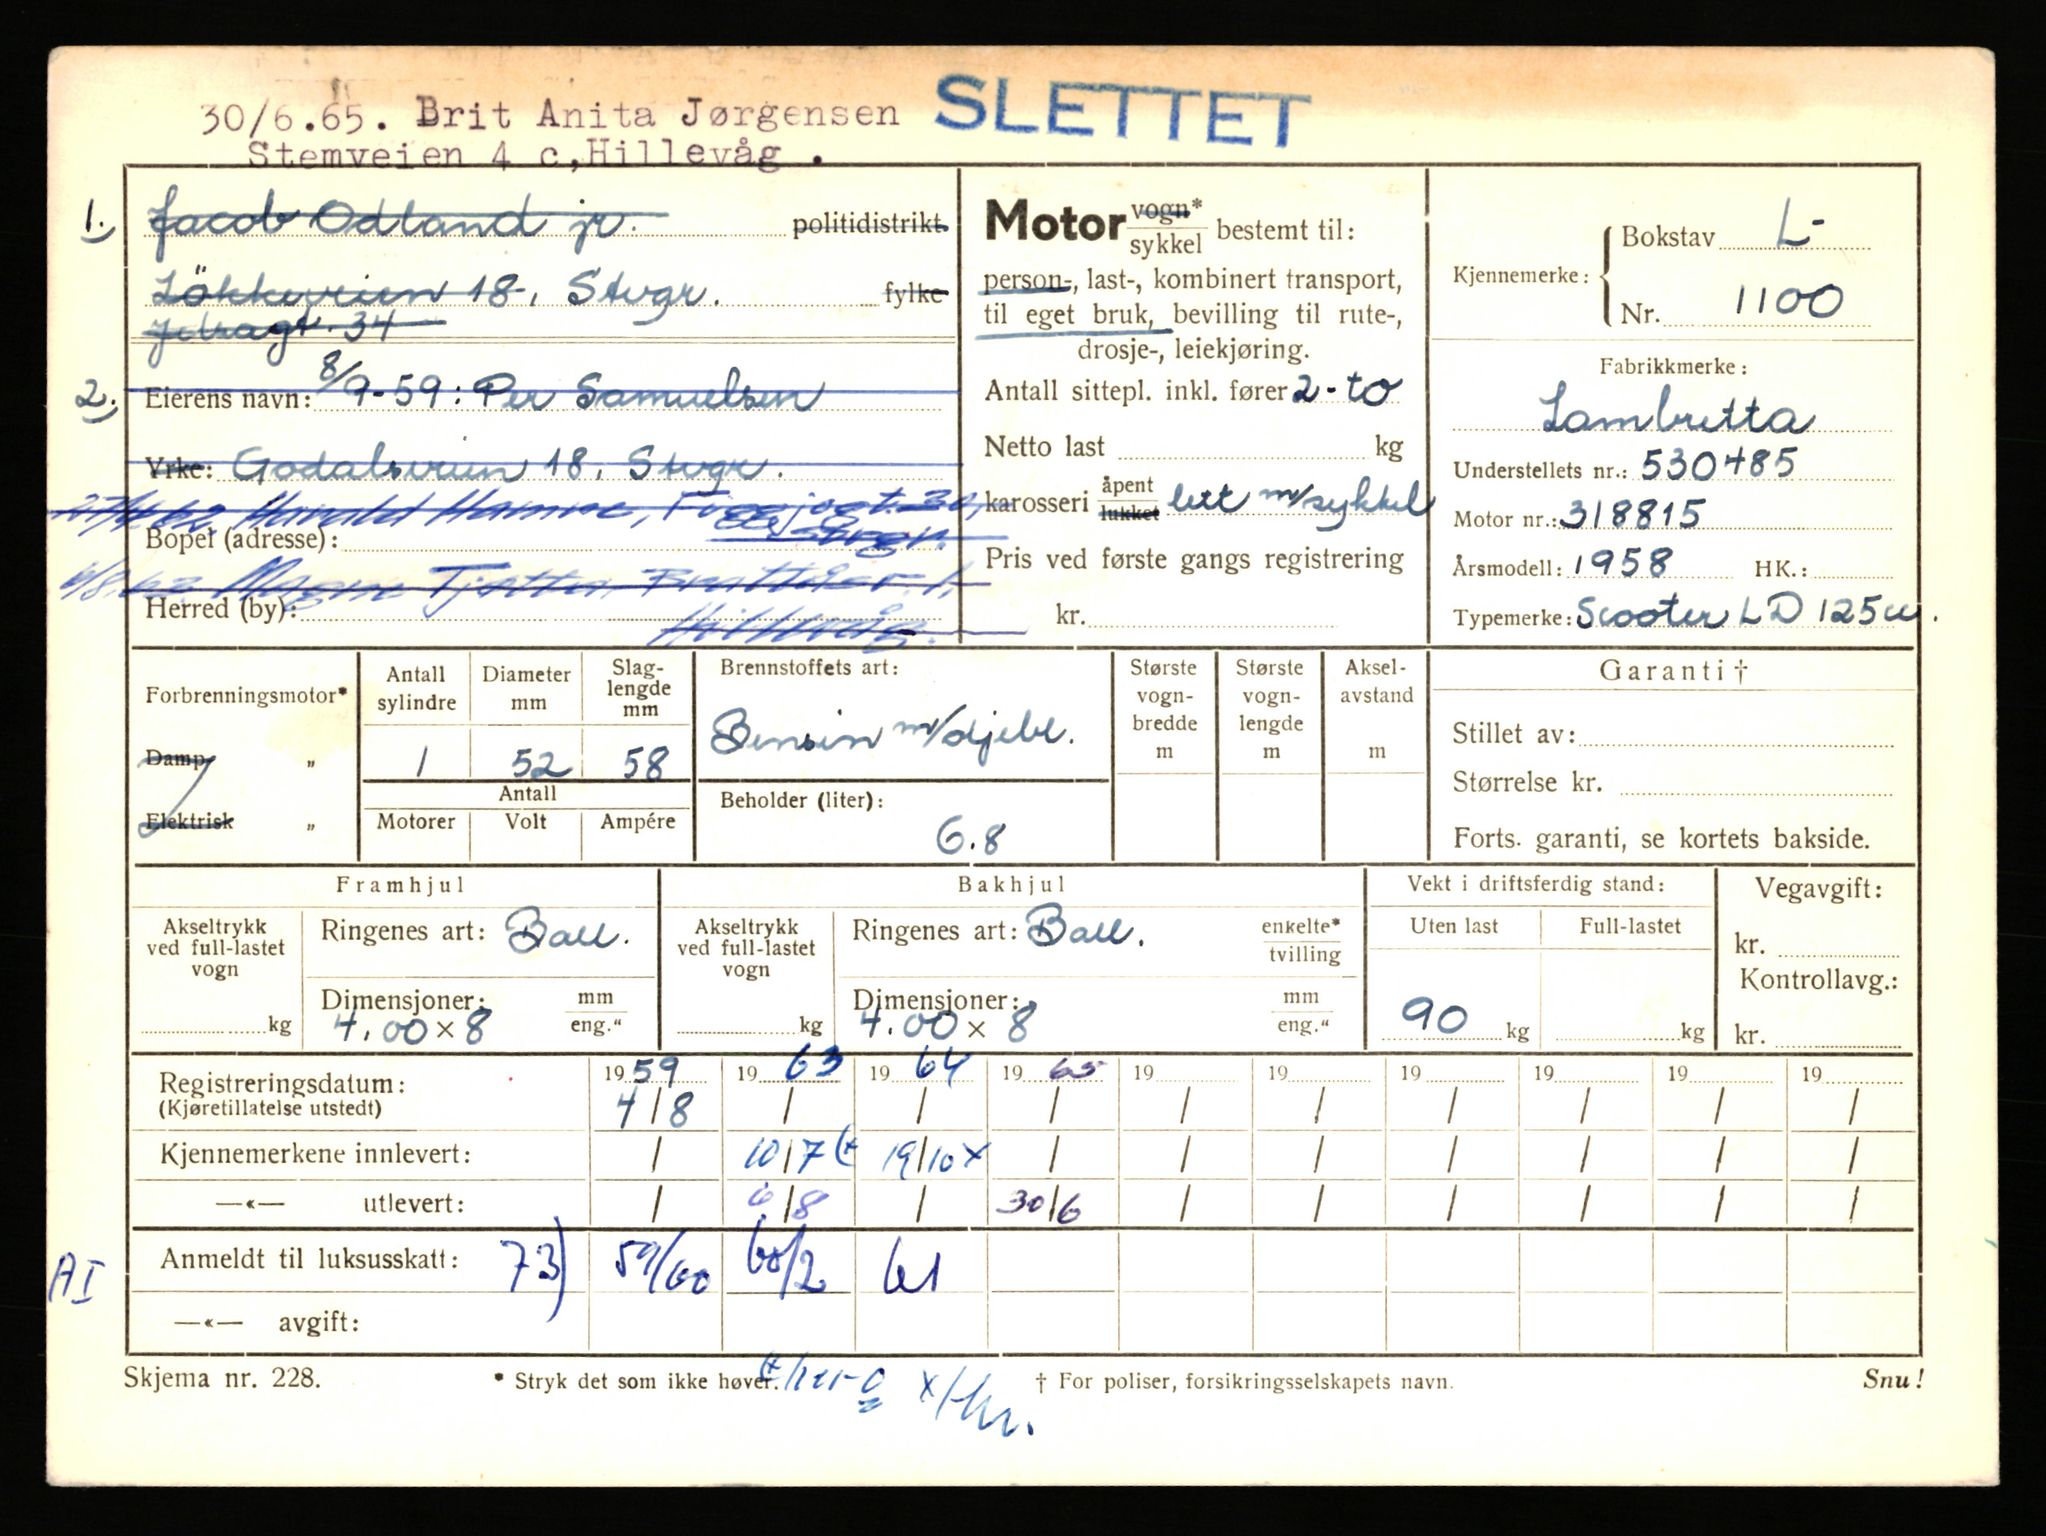 SLETTET
30/6.65. Brit Anita Jørgensen
Stemveien 4 c, Hillevåg .
1. Jacob Odland jr. politidistrikt
Lökkeveien 18, Stvgr. fylke
34
2. Eierens navn: 8/9-59: Per Samuelsen
Yrke: Godalsveien 18, Stvgr.
27/4 62 Harald Hamre,
Bopel (adresse):
6/8.63 Magne Tjøtta,
Herred (by): Hillevåg.
Motor vogn* / sykkel bestemt til:
person-, last-, kombinert transport,
til eget bruk, bevilling til rute-,
drosje-, leiekjøring.
Antall sittepl. inkl. fører 2-to
Netto last kg
karosseri åpent / lukket lett m/sykkel
Pris ved første gangs registrering
kr.
Kjennemerke: Bokstav L-
Nr. 1100
Fabrikkmerke:
Lambretta
Understellets nr.: 530485
Motor nr.: 318815
Årsmodell: 1958 HK.:
Typemerke: Scooter LD 125cc.
Forbrenningsmotor*
Damp „
Elektrisk „
Antall sylindre Diameter mm Slaglengde mm
1 52 58
Antall
Motorer Volt Ampére
Brennstoffets art:
Bensin m/oljebl.
Beholder (liter):
6.8
Største vognbredde m
Største vognlengde m
Akselavstand m
Garanti †
Stillet av:
Størrelse kr.
Forts. garanti, se kortets bakside.
Framhjul Bakhjul Vekt i driftsferdig stand: Vegavgift:
Akseltrykk ved full-lastet vogn kg
Ringenes art: Ball.
Dimensjoner: mm / eng."
4.00 x 8
Akseltrykk ved full-lastet vogn kg
Ringenes art: Ball. enkelte* / tvilling
Dimensjoner: mm / eng."
4.00 x 8
Uten last Full-lastet
90 kg kg
kr.
Kontrollavg.:
kr.
1959 1963 1964 1965 19 19 19 19 19 19
Registreringsdatum: 4/8 / / / / / / / / /
(Kjøretillatelse utstedt)
Kjennemerkene innlevert: / 10/7 (* 19/10 x / / / / / / /
—«— utlevert: / 6/8 / 30/6 / / / / / /
AI Anmeldt til luksusskatt: 73) 59/60 60/2 61
—«— avgift:
Skjema nr. 228. * Stryk det som ikke høver. † For poliser, forsikringsselskapets navn. Snu!